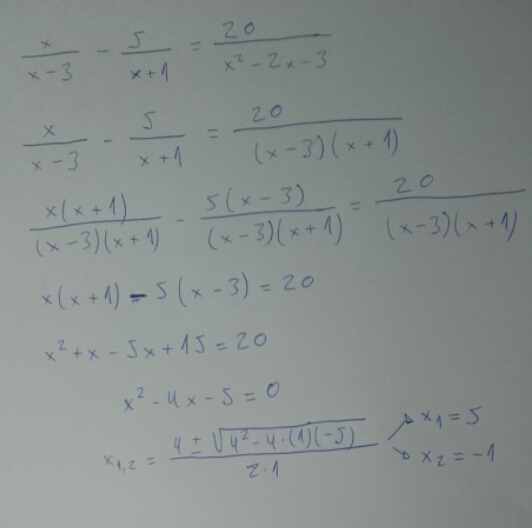 x/(x-3) - 5/(x+1) = 20/(x²-2x-3)
x/(x-3) - 5/(x+1) = 20/((x-3)(x+1))
x(x+1)/((x-3)(x+1)) - 5(x-3)/((x-3)(x+1)) = 20/((x-3)(x+1))
x(x+1) - 5(x-3) = 20
x²+x-5x+15=20
x²-4x-5=0
x₁,₂ = (4±√(4²-4·(1)(-5)))/(2·1) ↗ x₁=5
↘ x₂=-1